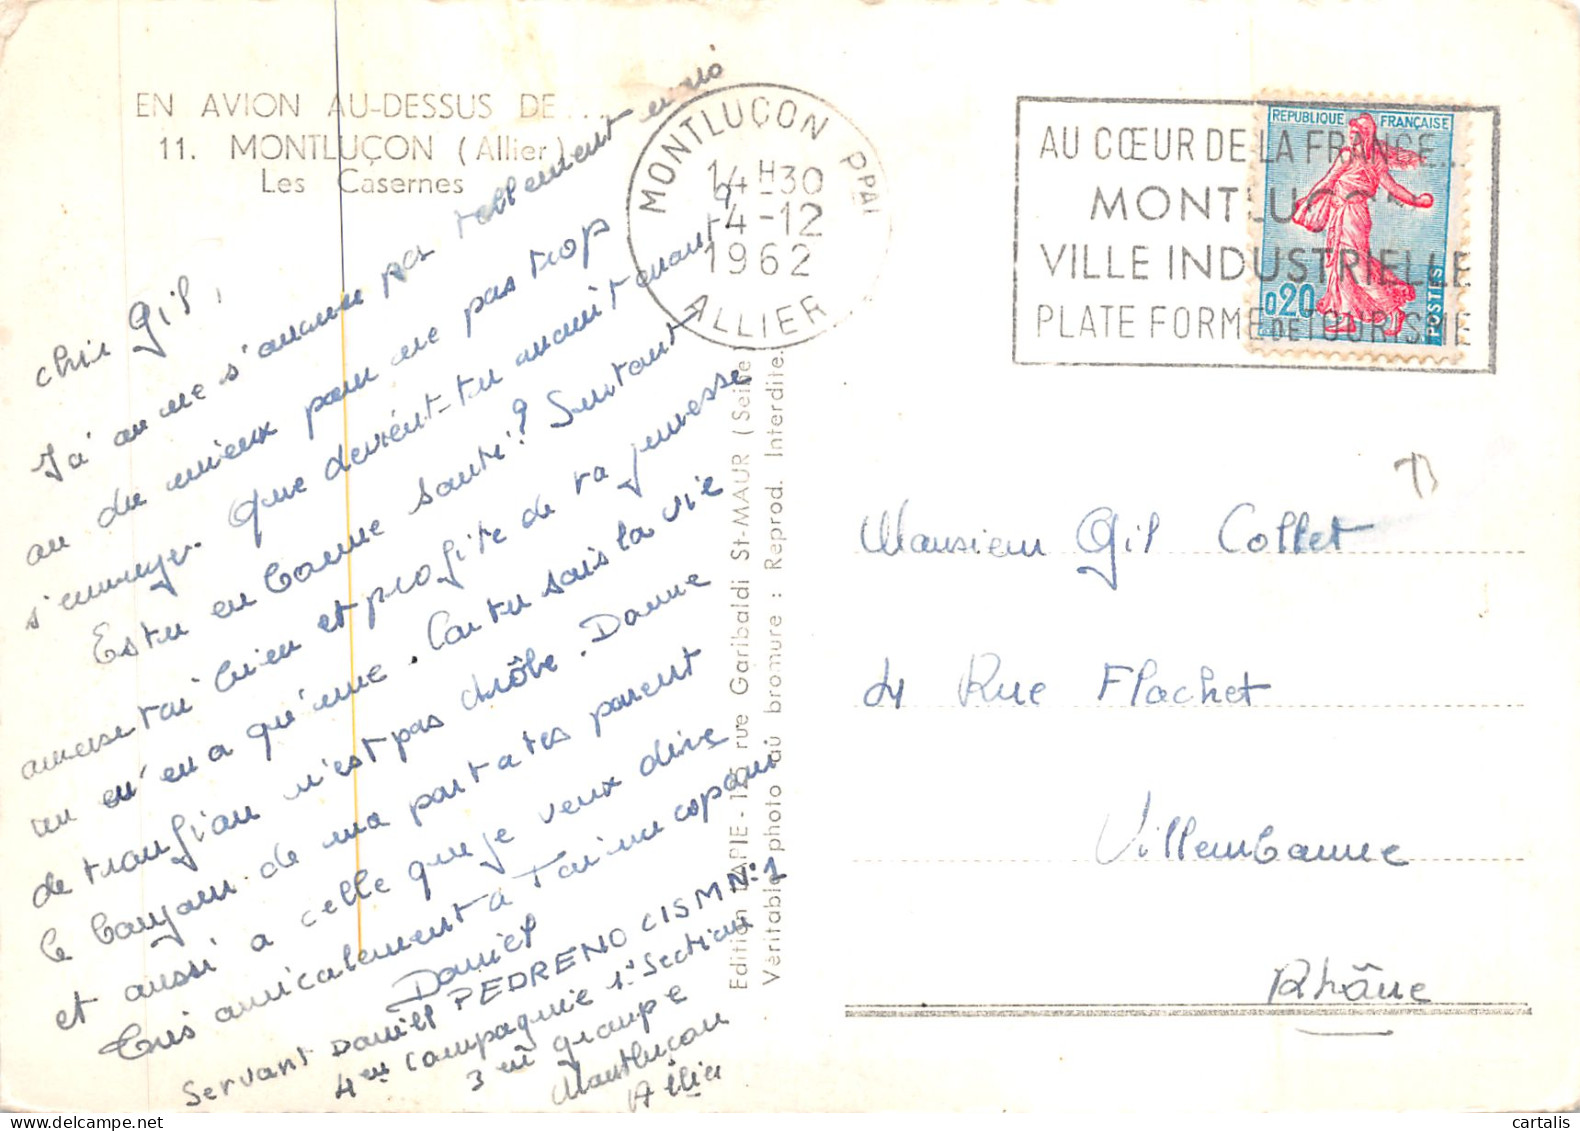 EN AVION AU-DESSUS DE ...
11. MONTLUÇON (Allier)
Les Casernes
cher Gil,
Ici on ne s'amuse pas tellement
au mieux pour ne pas trop
s'ennuyer. Que devient-tu maintenant ?
Estu en bonne santé ? Surtout
amuse toi bien et profite de ta jeunesse
on en a qu'une. Car tu sais la vie
de troufion n'est pas drôle. Donne
le bonjour de ma part a tes parent
et aussi a celle que je veux dire
Très amicalement a Toi un copain
Daniel
Servant Daniel PEDRENO CISM N°1
4em compagnie 1° Section
3em groupe
Montluçon
Allier
Edition LAPIE - rue Garibaldi St-MAUR (Seine)
Véritable photo au bromure : Reprod. Interdite.
MONTLUÇON PPAL
14H30
4-12
1962
ALLIER
AU CŒUR DE LA FRANCE...
MONTLUÇON
VILLE INDUSTRIELLE
PLATE FORME DE TOURISME
REPUBLIQUE FRANÇAISE
0,20
POSTES
Monsieur Gil Collet
4 Rue Flachet
Villeurbanne
Rhône
cartalis